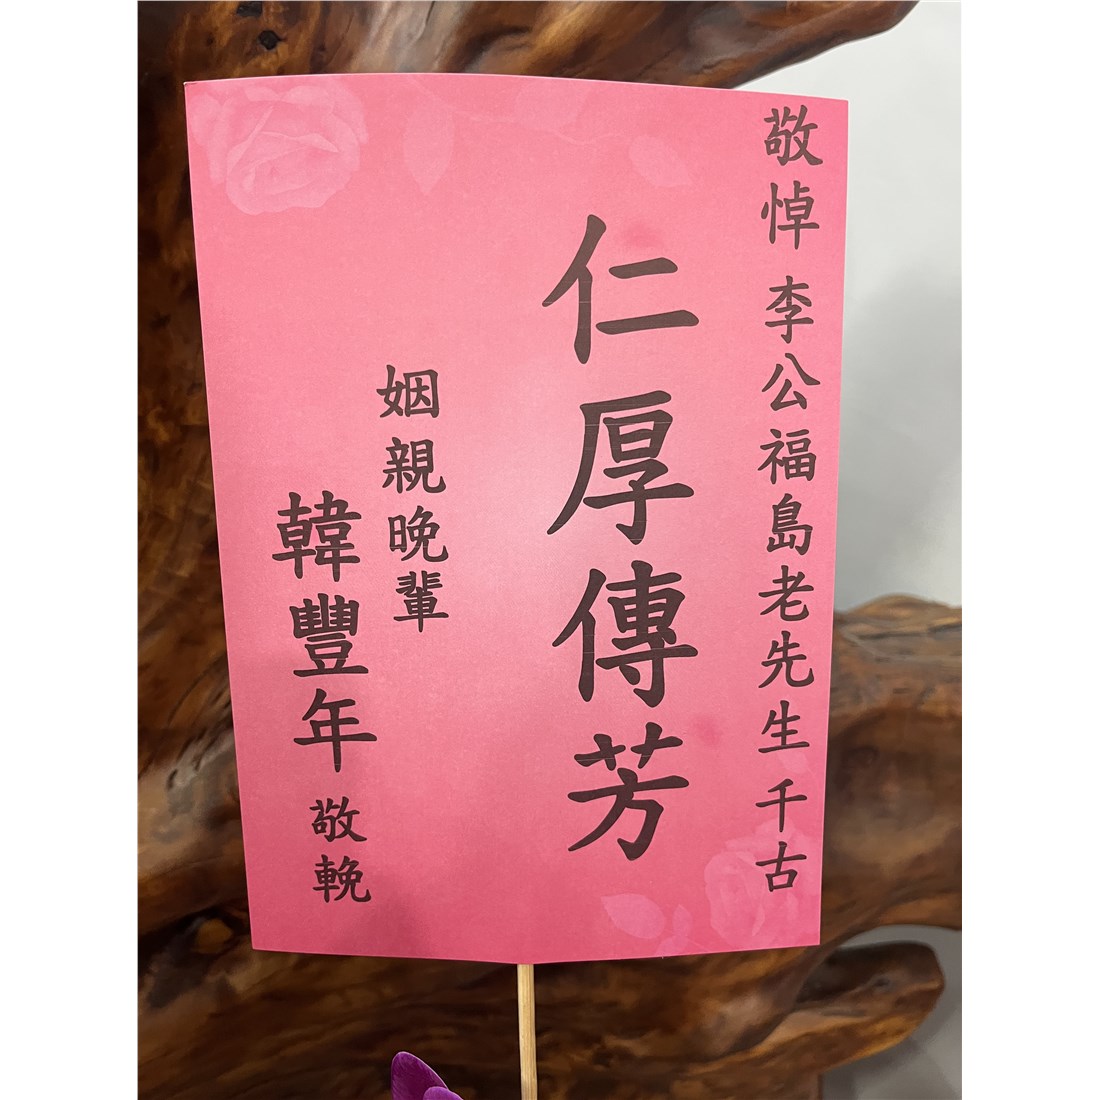 敬悼 李公福島老先生 千古
仁厚傳芳
姻親晚輩
韓豐年 敬輓